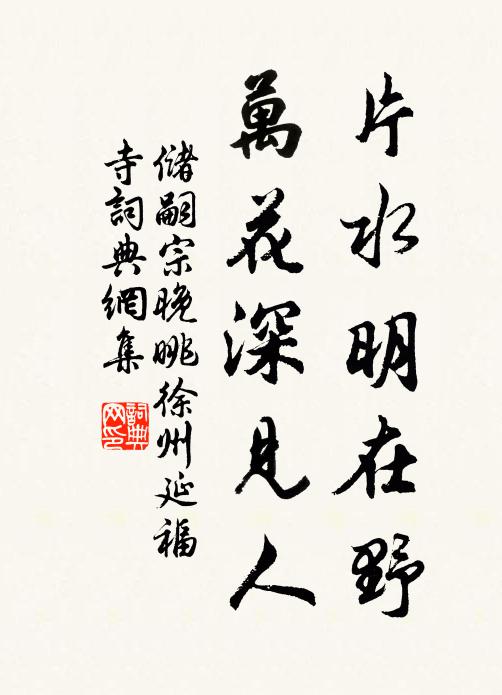 片水明在野
萬花深見人
儲嗣宗晚眺徐州延福
寺詞典網集
詞典網印